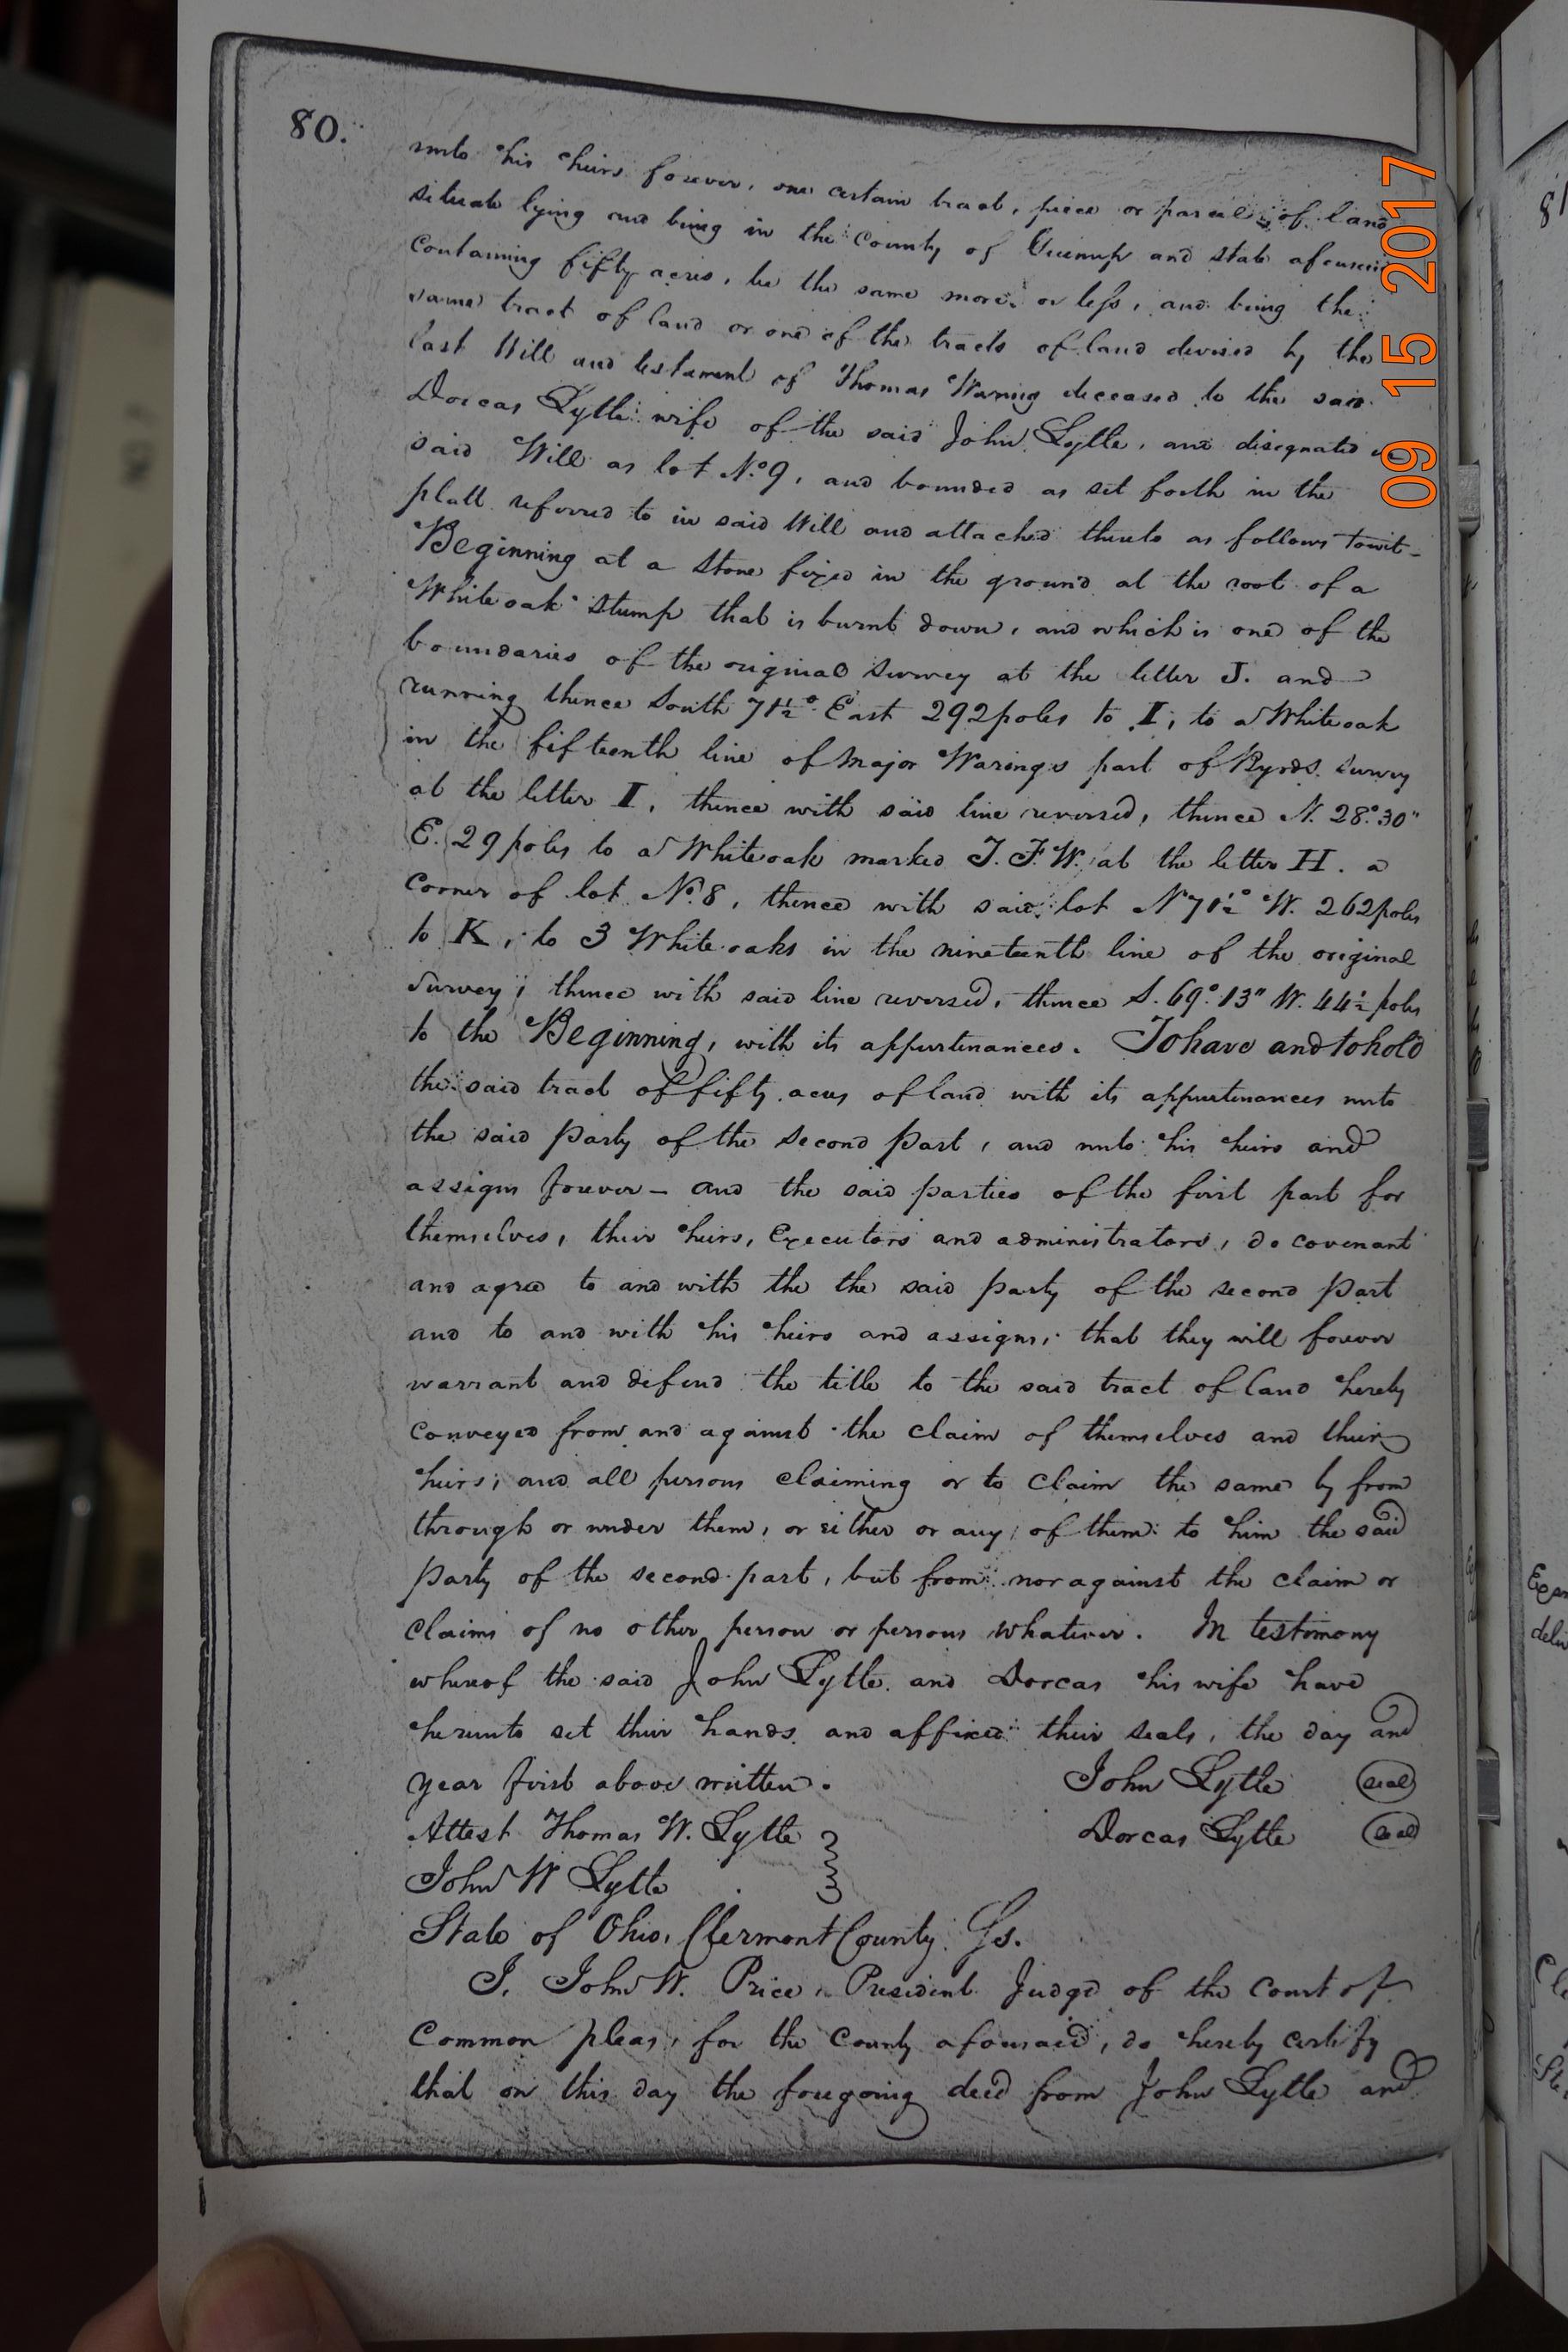 80.
unto his heirs forever, one certain tract, piece or parcel of land
situate lying and being in the county of Greenup and state aforesaid
containing fifty acres, be the same more or less, and being the
same tract of land or one of the tracts of land devised by the
last Will and testament of Thomas Waring deceased to the said
Dorcas Lytle wife of the said John Lytle, and designated in
said Will as lot No. 9, and bounded as set forth in the
platt referred to in said Will and attached thereto as follows towit-
Beginning at a stone fixed in the ground at the root of a
White oak stump that is burnt down, and which is one of the
boundaries of the original survey at the letter J. and
running thence South 71½° East 292 poles to I, to a White oak
in the fifteenth line of Major Warings part of Byrds survey
at the letter I, thence with said line reversed, thence N. 28°.30"
E. 29 poles to a White oak marked T. F. W. at the letter H. a
corner of lot No. 8, thence with said lot N 71½° W. 262 poles
to K, to 3 White oaks in the nineteenth line of the original
survey; thence with said line reversed, thence S. 69°.13" W. 44½ poles
to the Beginning, with its appurtenances. To have and to hold
the said tract of fifty acres of land with its appurtenances unto
the said Party of the second Part, and unto his heirs and
assigns forever - and the said parties of the first part for
themselves, their heirs, Executors and administrators, do covenant
and agree to and with the the said Party of the second Part
and to and with his heirs and assigns, that they will forever
warrant and defend the title to the said tract of land hereby
conveyed from and against the claim of themselves and their
heirs, and all persons claiming or to claim the same by from
through or under them, or either or any of them to him the said
Party of the second part, but from nor against the claim or
claims of no other person or persons whatever. In testimony
whereof the said John Lytle and Dorcas his wife have
hereunto set their hands and affixed their seals, the day and
year first above written. John Lytle (seal)
Attest Thomas W. Lytle Dorcas Lytle (seal)
John W Lytle
State of Ohio, Clermont County Ss.
I, John W. Price, President Judge of the Court of
Common pleas, for the County aforesaid, do hereby certify
that on this day the foregoing deed from John Lytle and
09 15 2017